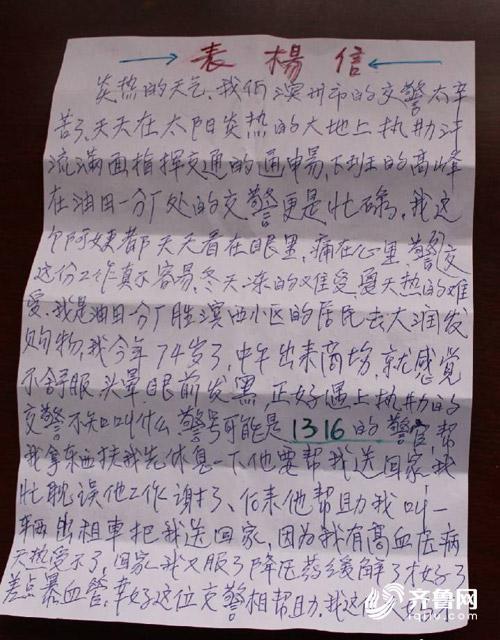 → 表楊信 ←
炎热的天气,我们滨州市的交警太辛
苦了,天天在太阳炎热的大地上执勤汗
流满面指挥交通的通畅,下班的高峰
在油田一分厂处的交警更是忙碌,我这
个阿姨都天天看在眼里,痛在心里,警交
这份工作真不容易,冬天冻的难受,夏天热的难
受,我是油田一分厂胜滨西小区的居民去大润发
购物,我今年74岁了,中午出来商场,就感觉
不舒服,头晕眼前发黑,正好遇上执勤的
交警不知叫什么警号可能是1316的警官,帮
我拿东西扶我先休息一下他要帮我送回家,我
忙耽误他工作谢了、后来他帮助我叫一
辆出租車把我送回家,因为我有高血压病
天热受不了,回家我又服了降压药缓解了才好了
差点暴血管,幸好这位交警相帮助,我这
齐鲁网